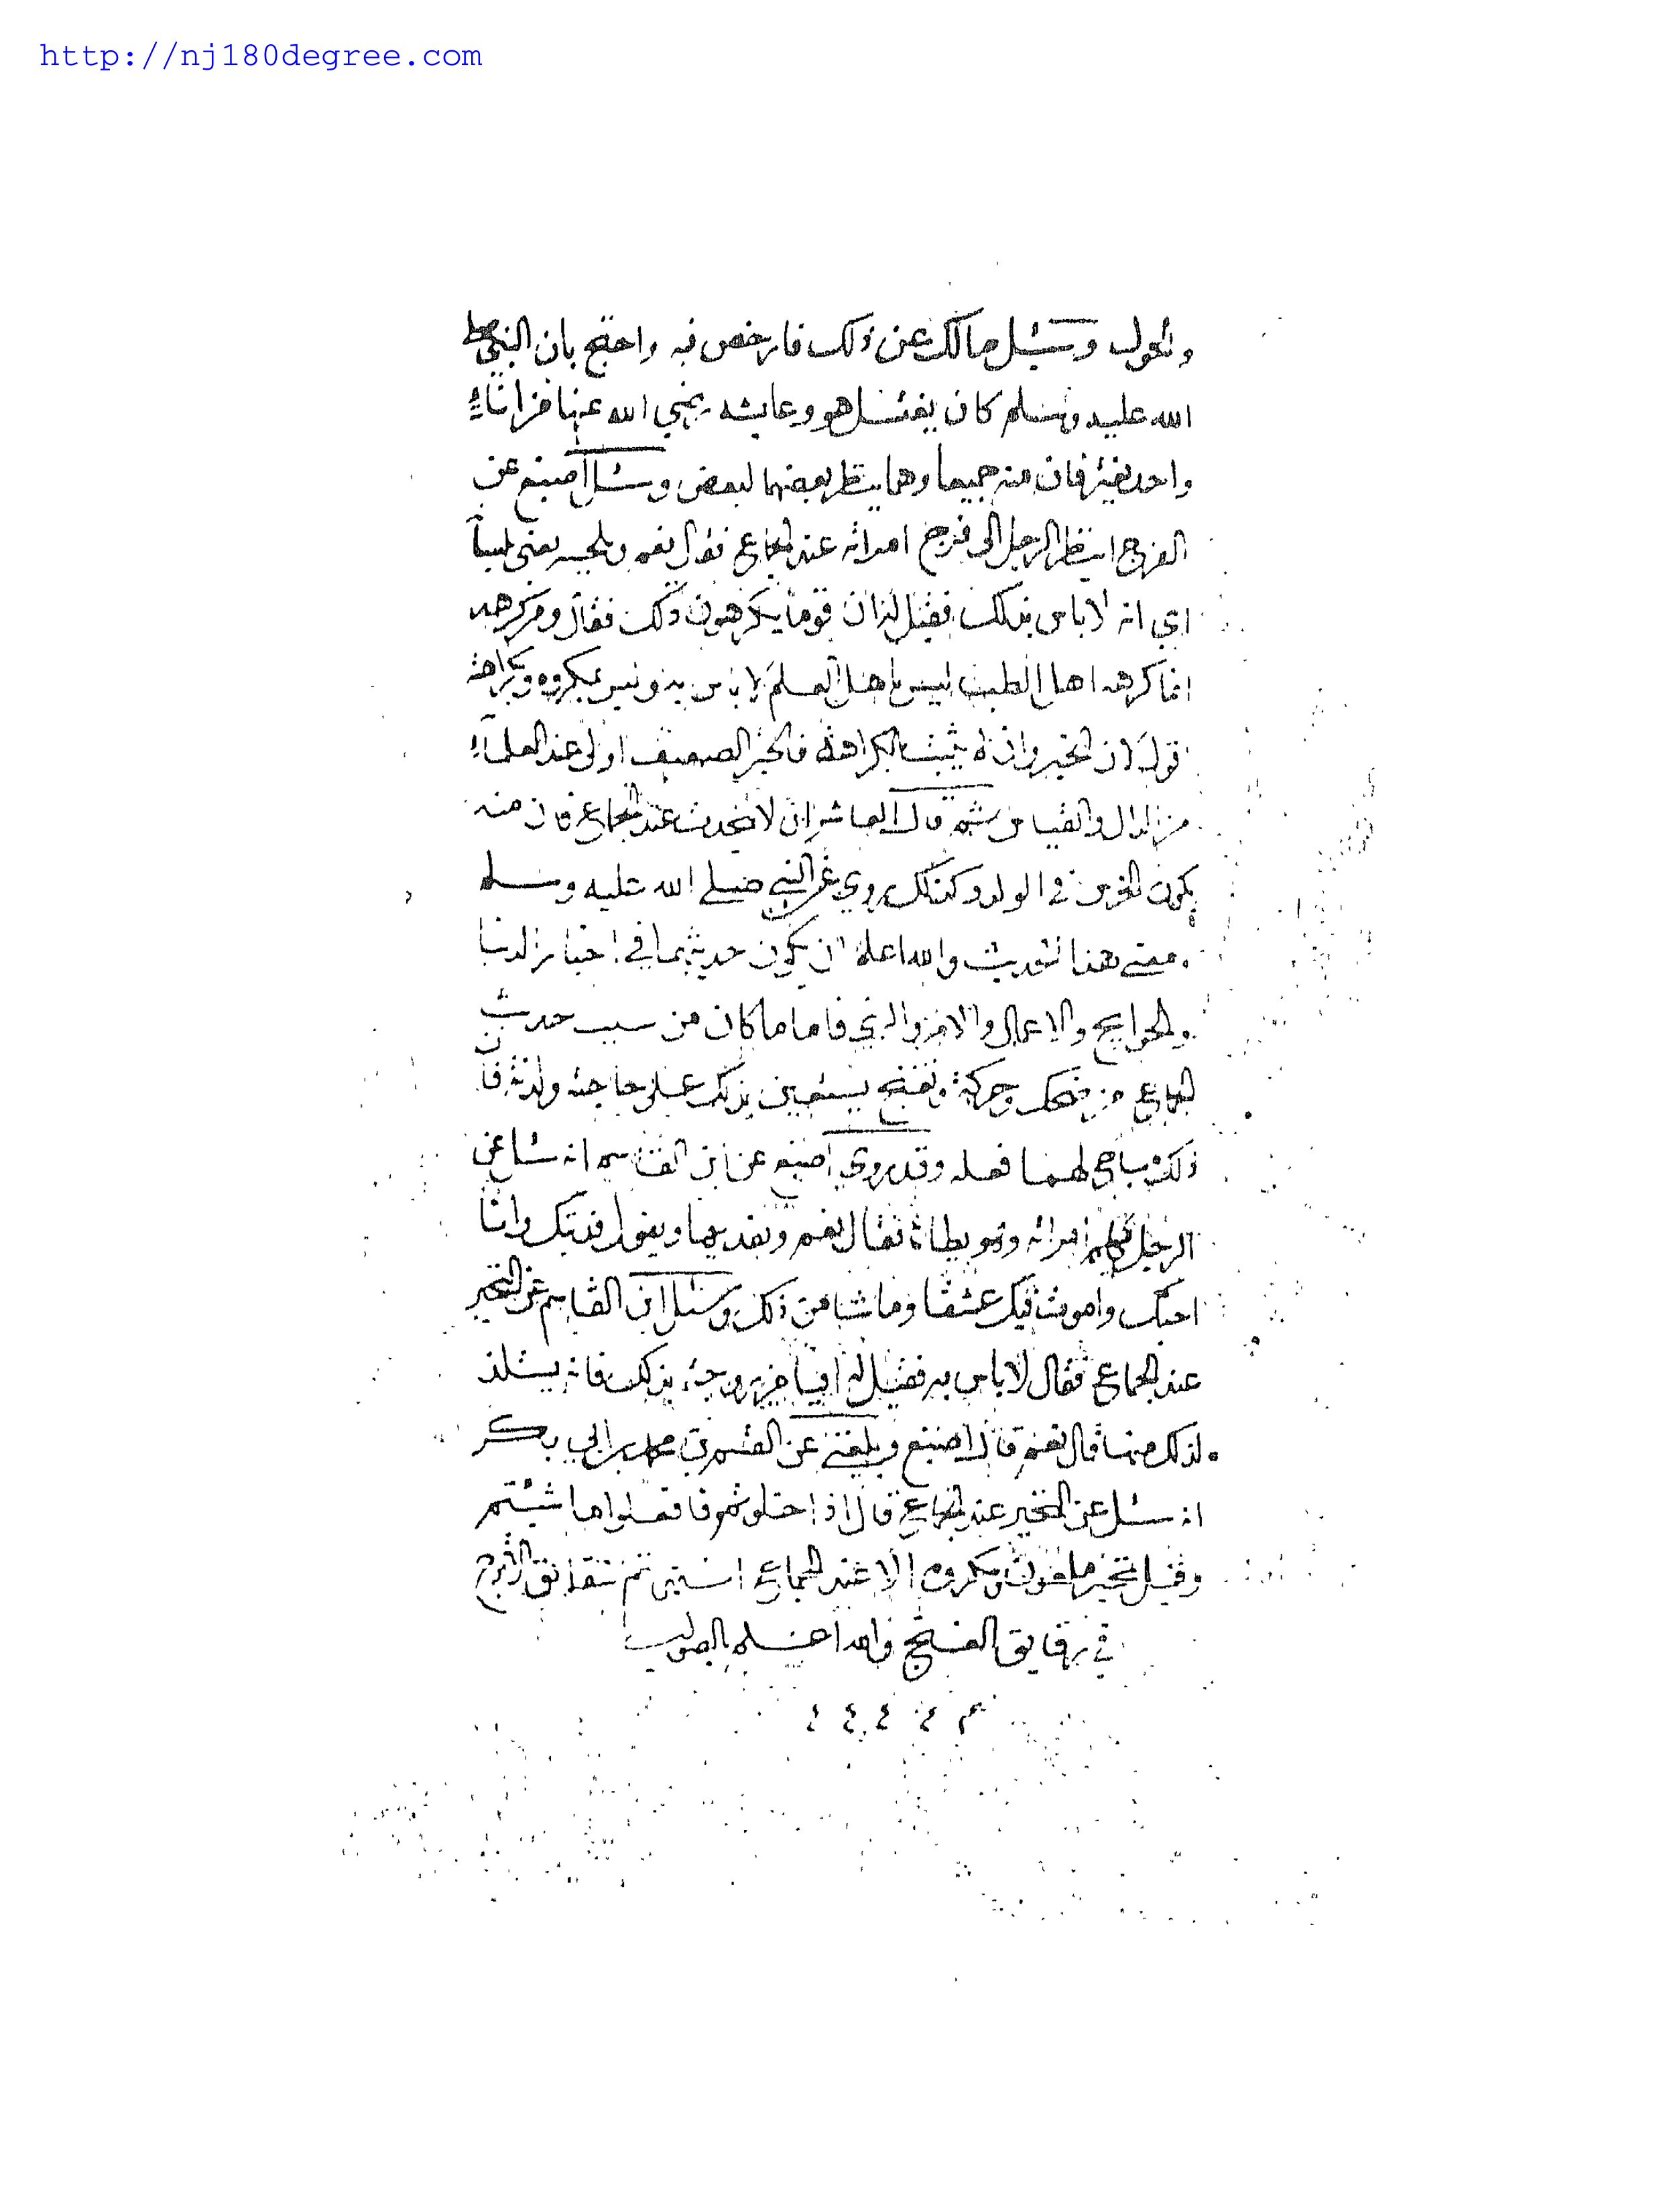 http://nj180degree.com
والحول وسئيل مالك عن ذلك فارخص فيه واحتج بان النبي صلى
الله عليه وسلم كان يغتسل هو وعايشه رضي الله عنها من اناء
واحد يغترفان منه جميعا وهما ينظر بعضهما لبعض وسئل اصبغ عن
الفرج اينظر الرجل الى فرج امراته عند الجماع فقال نعم ويلحسه يعني لسانا
اي انه لا باس بذلك فقيل له ان قوما يكرهون ذلك فقال ومن كرهه
انما كرهه اهل الطب ليس اهل العلم لا باس به وليس بمكروه وبكراهته
قول لان الخبر وان لم يثبت الكراهة فالخبر الضعيف اولى عند العلماء
من الراي والقياس ثم قال العاشر ان لا يتحدث عند الجماع فان منه
يكون الخرس في الولد وكذلك روي عن النبي صلى الله عليه وسلم
معنى هذا الحديث والله اعلم ان يكون حديثهما في اخبار الدنيا
والحوايج والاعمال والامر والنهي فاما ما كان من سبب حديث
الجماع من ضحك وحركة وتغنج يستعين بذلك على حاجته ولذته فان
ذلك مباح لهما فعله وقد روي اصبغ عن ابن القاسم انه سئل عن
الرجل يكلم امراته وهو يطاها فقال نعم ويفديها ويقول فديتك وانا
احبك واموت فيك عشقا وما شا من ذلك وسئل ابن القاسم عن النخير
عند الجماع فقال لا باس به فقيل له ايامر زوجته بذلك فانه يستلذ
لذلك منها قال نعم قال اصبغ وبلغني عن القسم بن محمد بن ابي بكر
انه سئل عن النخير عند الجماع قال اذا خلوتم فافعلوا ما شيتم
وقيل نخير مكروه الا عند الجماع انتهى تم شقايق الاترج
في رقايق الغنج والله اعلم بالصواب
م